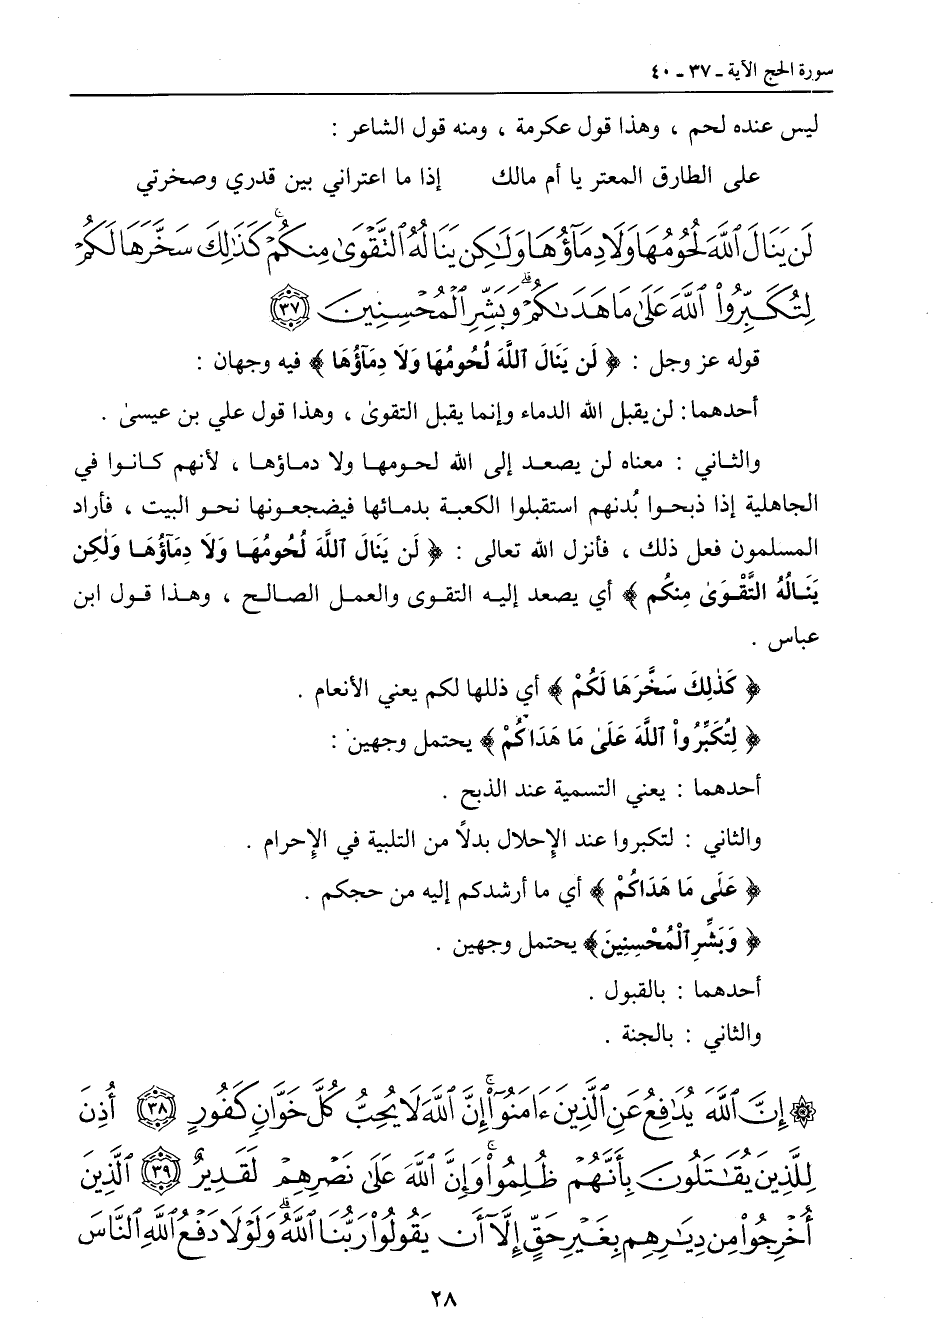 سورة الحج الآية ـ ٣٧ ـ ٤٠
ليس عنده لحم ، وهذا قول عكرمة ، ومنه قول الشاعر :
على الطارق المعتر يا أم مالك إذا ما اعتراني بين قدري وصخرتي
لَن يَنَالَ ٱللَّهَ لُحُومُهَا وَلَا دِمَآؤُهَا وَلَٰكِن يَنَالُهُ ٱلتَّقْوَىٰ مِنكُمْۚ كَذَٰلِكَ سَخَّرَهَا لَكُمْ
لِتُكَبِّرُوا۟ ٱللَّهَ عَلَىٰ مَا هَدَىٰكُمْۗ وَبَشِّرِ ٱلْمُحْسِنِينَ ٣٧
قوله عز وجل : ﴿ لَن يَنَالَ ٱللَّهَ لُحُومُهَا وَلَا دِمَآؤُهَا ﴾ فيه وجهان :
أحدهما : لن يقبل الله الدماء وإنما يقبل التقوىٰ ، وهذا قول علي بن عيسىٰ .
والثاني : معناه لن يصعد إلى الله لحومها ولا دماؤها ، لأنهم كانوا في
الجاهلية إذا ذبحوا بُدنهم استقبلوا الكعبة بدمائها فيضجعونها نحو البيت ، فأراد
المسلمون فعل ذلك ، فأنزل الله تعالى : ﴿ لَن يَنَالَ ٱللَّهَ لُحُومُهَا وَلَا دِمَآؤُهَا وَلَٰكِن
يَنَالُهُ التَّقْوَىٰ مِنكُم ﴾ أي يصعد إليه التقوى والعمل الصالح ، وهذا قول ابن
عباس .
﴿ كَذَٰلِكَ سَخَّرَهَا لَكُمْ ﴾ أي ذللها لكم يعني الأنعام .
﴿ لِتُكَبِّرُوا۟ ٱللَّهَ عَلَىٰ مَا هَدَاكُمْ ﴾ يحتمل وجهين :
أحدهما : يعني التسمية عند الذبح .
والثاني : لتكبروا عند الإحلال بدلاً من التلبية في الإحرام .
﴿ عَلَى مَا هَدَاكُمْ ﴾ أي ما أرشدكم إليه من حجكم .
﴿ وَبَشِّرِ ٱلْمُحْسِنِينَ ﴾ يحتمل وجهين .
أحدهما : بالقبول .
والثاني : بالجنة .
۞ إِنَّ ٱللَّهَ يُدَٰفِعُ عَنِ ٱلَّذِينَ ءَامَنُوٓا۟ۚ إِنَّ ٱللَّهَ لَا يُحِبُّ كُلَّ خَوَّانٍ كَفُورٍ ٣٨ أُذِنَ
لِلَّذِينَ يُقَٰتَلُونَ بِأَنَّهُمْ ظُلِمُوا۟ۚ وَإِنَّ ٱللَّهَ عَلَىٰ نَصْرِهِمْ لَقَدِيرٌ ٣٩ ٱلَّذِينَ
أُخْرِجُوا۟ مِن دِيَٰرِهِم بِغَيْرِ حَقٍّ إِلَّآ أَن يَقُولُوا۟ رَبُّنَا ٱللَّهُۗ وَلَوْلَا دَفْعُ ٱللَّهِ ٱلنَّاسَ
٢٨